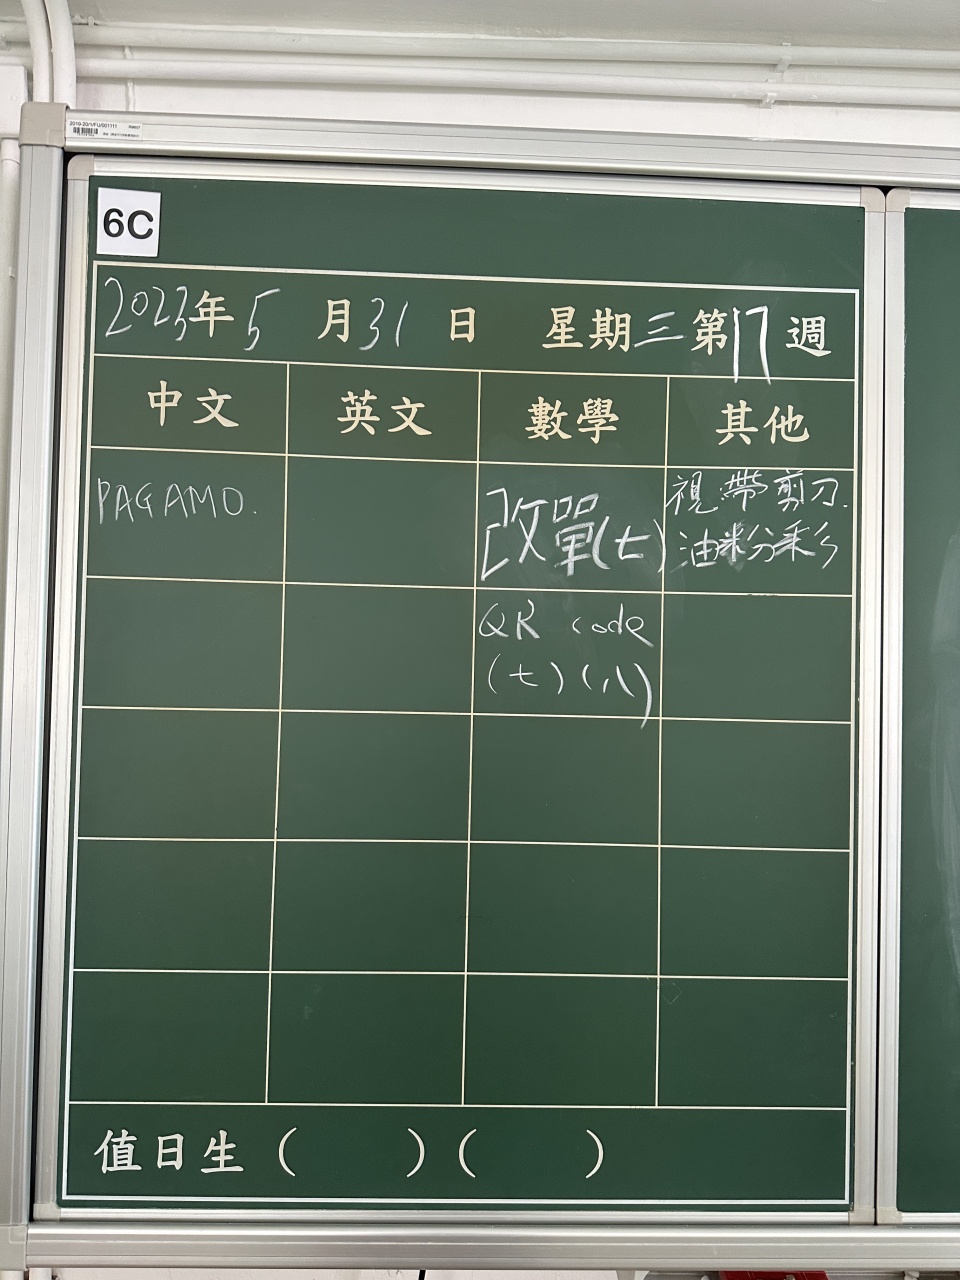 2019-20/1/FU/001111
6C
2023年5月31日 星期三第17週
中文 英文 數學 其他
PAGAMO.
改單(七)
視:帶剪刀.
油粉彩
QR code
(七)(八)
值日生( )( )